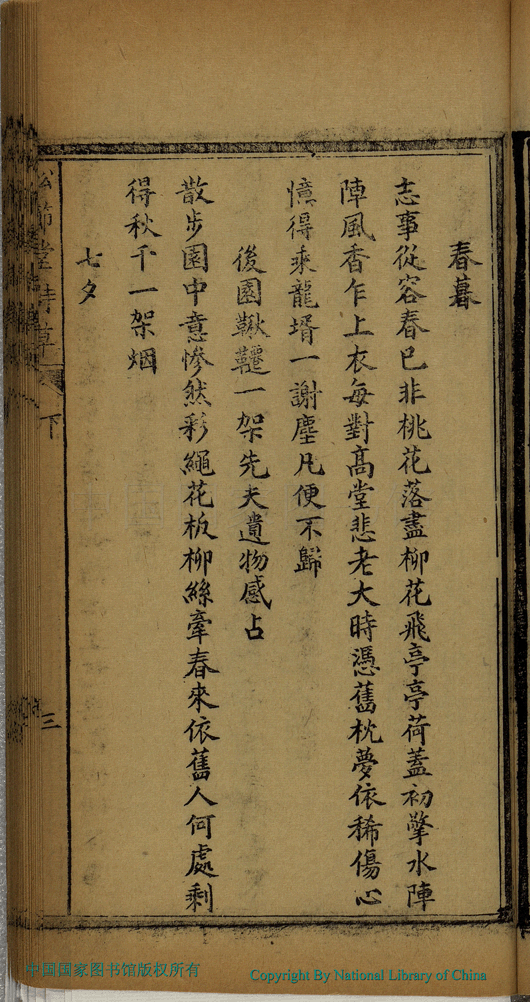 春暮
志事從容春已非桃花落盡柳花飛亭亭荷蓋初擎水陣
陣風香乍上衣每對高堂悲老大時憑舊枕夢依稀傷心
憶得乘龍壻一謝塵凡便不歸
後園鞦韆一架先夫遺物感占
散步園中意慘然彩繩花板柳絲牽春來依舊人何處剩
得秋千一架烟
七夕
節堂詩草 下 三
中国国家图书馆版权所有
Copyright By National Library of China